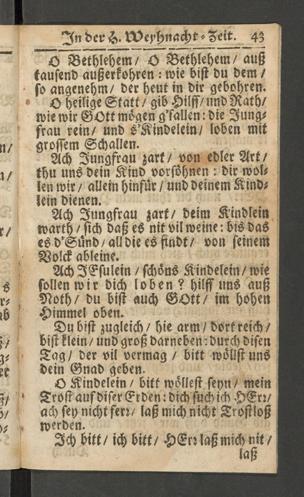 In der H. Weyhnacht-Zeit. 43
O Bethlehem / O Bethlehem / auß
tausend außerkohren : wie bist du dem /
so angenehm / der heut in dir gebohren.
O heilige Statt / gib Hilff / und Rath /
wie wir GOtt mögen g'fallen : die Jung-
frau rein / und s'Kindelein / loben mit
grossem Schallen.
Ach Jungfrau zart / von edler Art /
thu uns dein Kind versöhnen : dir wol-
len wir / allein hinfür / und deinem Kind-
lein dienen.
Ach Jungfrau zart / deim Kindlein
warth / sich daß es nit vil weine : bis das
es d'Sünd / all die es findt / von seinem
Volck ableine.
Ach JEsulein / schöns Kindelein / wie
sollen wir dich loben ? hilff uns auß
Noth / du bist auch GOtt / im hohen
Himmel oben.
Du bist zugleich / hie arm / dort reich /
bist klein / und groß darneben : durch disen
Tag / der vil vermag / bitt wöllst uns
dein Gnad geben.
O Kindelein / bitt wöllest seyn / mein
Trost auf diser Erden : dich such ich HEr: /
ach sey nicht fer: / laß mich nicht Trostloß
werden.
Ich bitt / ich bitt / HEr: laß mich nit /
laß